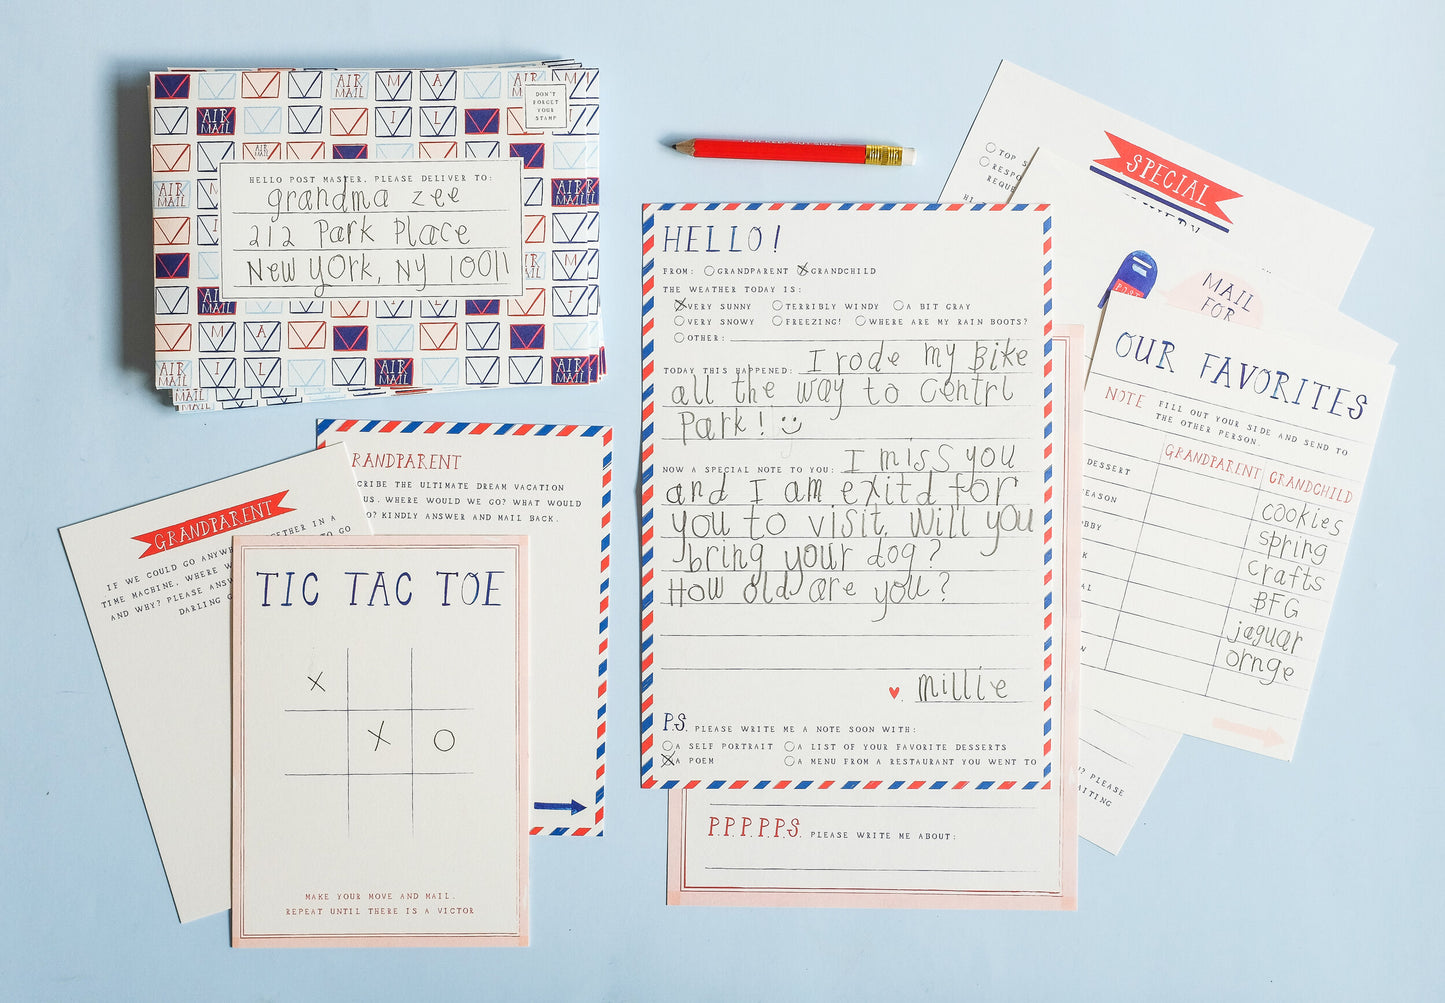 AIR MAIL
DON'T
FORGET
YOUR
STAMP
HELLO POST MASTER, PLEASE DELIVER TO:
grandma zee
212 Park Place
New york, NY 10011
GRANDPARENT
IF WE COULD GO
TIME MACHINE, WHERE
AND WHY? PLEASE
DARLING
RANDPARENT
SCRIBE THE ULTIMATE DREAM VACATION
US. WHERE WOULD WE GO? WHAT WOULD
O? KINDLY ANSWER AND MAIL BACK.
TIC TAC TOE
X
X O
MAKE YOUR MOVE AND MAIL.
REPEAT UNTIL THERE IS A VICTOR
HELLO!
FROM: GRANDPARENT GRANDCHILD
THE WEATHER TODAY IS:
VERY SUNNY TERRIBLY WINDY A BIT GRAY
VERY SNOWY FREEZING! WHERE ARE MY RAIN BOOTS?
OTHER:
TODAY THIS HAPPENED: I rode my Bike
all the way to centrl
Park!
NOW A SPECIAL NOTE TO YOU: I miss you
and I am exitd for
you to visit. Will you
bring your dog?
How old are you?
Millie
P.S. PLEASE WRITE ME A NOTE SOON WITH:
A SELF PORTRAIT A LIST OF YOUR FAVORITE DESSERTS
A POEM A MENU FROM A RESTAURANT YOU WENT TO
P.P.P.P.P.S. PLEASE WRITE ME ABOUT:
SPECIAL
TOP
MAIL
FOR
OUR FAVORITES
NOTE FILL OUT YOUR SIDE AND SEND TO
THE OTHER PERSON.
GRANDPARENT GRANDCHILD
DESSERT cookies
EASON spring
BBY crafts
K BFG
AL jaguar
N ornge
? PLEASE
AITING